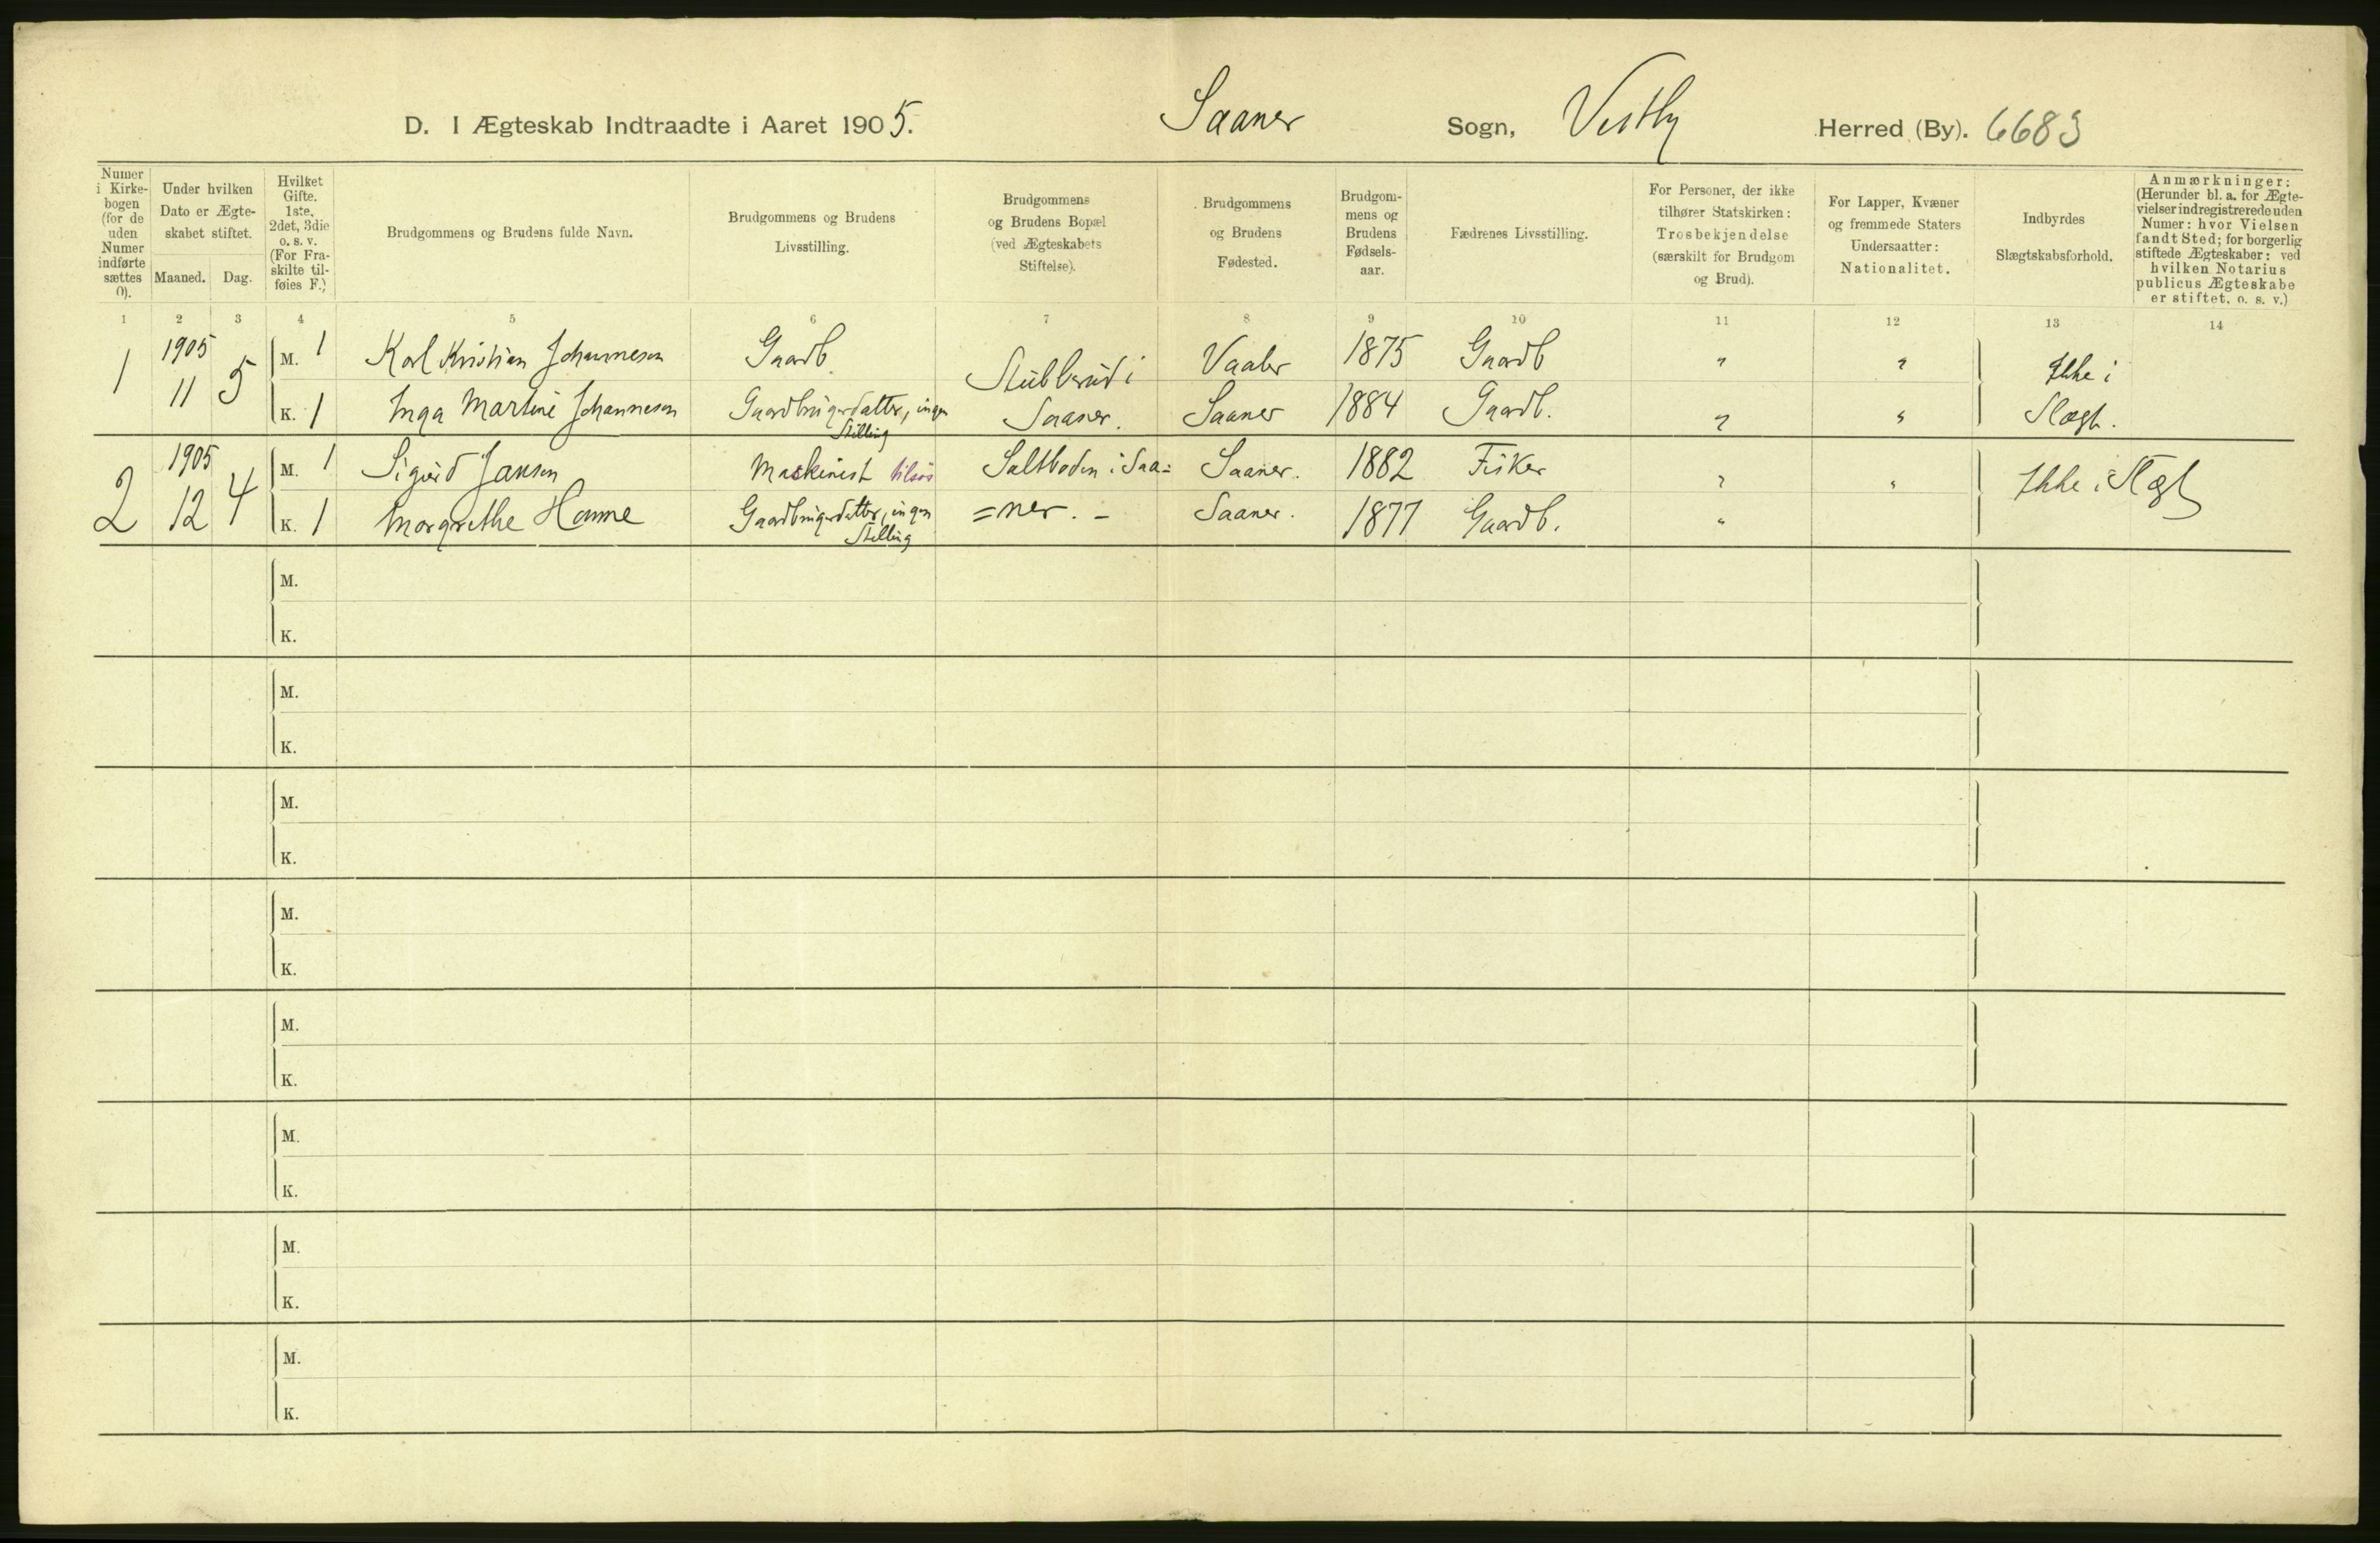 D. I Ægteskab Indtraadte i Aaret 1905. Saaner Sogn, Vestby Herred (By). 6683
Numer i Kirkebogen (for de uden Numer indførte sættes 0).
Under hvilken Dato er Ægteskabet stiftet.
Maaned. Dag.
Hvilket Gifte. 1ste, 2det, 3die o. s. v. (For Fraskilte tilføies F.)
Brudgommens og Brudens fulde Navn.
Brudgommens og Brudens Livsstilling.
Brudgommens og Brudens Bopæl (ved Ægteskabets Stiftelse).
Brudgommens og Brudens Fødested.
Brudgommens og Brudens Fødselsaar.
Fædrenes Livsstilling.
For Personer, der ikke tilhører Statskirken: Trosbekjendelse (særskilt for Brudgom og Brud).
For Lapper, Kvæner og fremmede Staters Undersaatter: Nationalitet.
Indbyrdes Slægtskabsforhold.
Anmærkninger: (Herunder bl. a. for Ægtevielser indregistrerede uden Numer: hvor Vielsen fandt Sted; for borgerlig stiftede Ægteskaber: ved hvilken Notarius publicus Ægteskabe er stiftet, o. s. v.)
1 2 3 4 5 6 7 8 9 10 11 12 13 14
1 1905 11 5 M. 1 Karl Kristian Johannesen Gaardb. Stubberud i Vaaler 1875 Gaardb " " Ikke i
K. 1 Inga Martine Johannesen Gaardbrugerdatter, ingen Stilling Saaner. Saaner 1884 Gaardb. " " Slægt.
2 1905 12 4 M. 1 Sigurd Jansen Maskinist tilsøs Saltboden i Saa= Saaner. 1882 Fisker " " Ikke i Slægt
K. 1 Margrethe Hanne Gaardbrugerdatter, ingen Stilling =ner. - Saaner. 1877 Gaardb. "
M.
K.
M.
K.
M.
K.
M.
K.
M.
K.
M.
K.
M.
K.
M.
K.